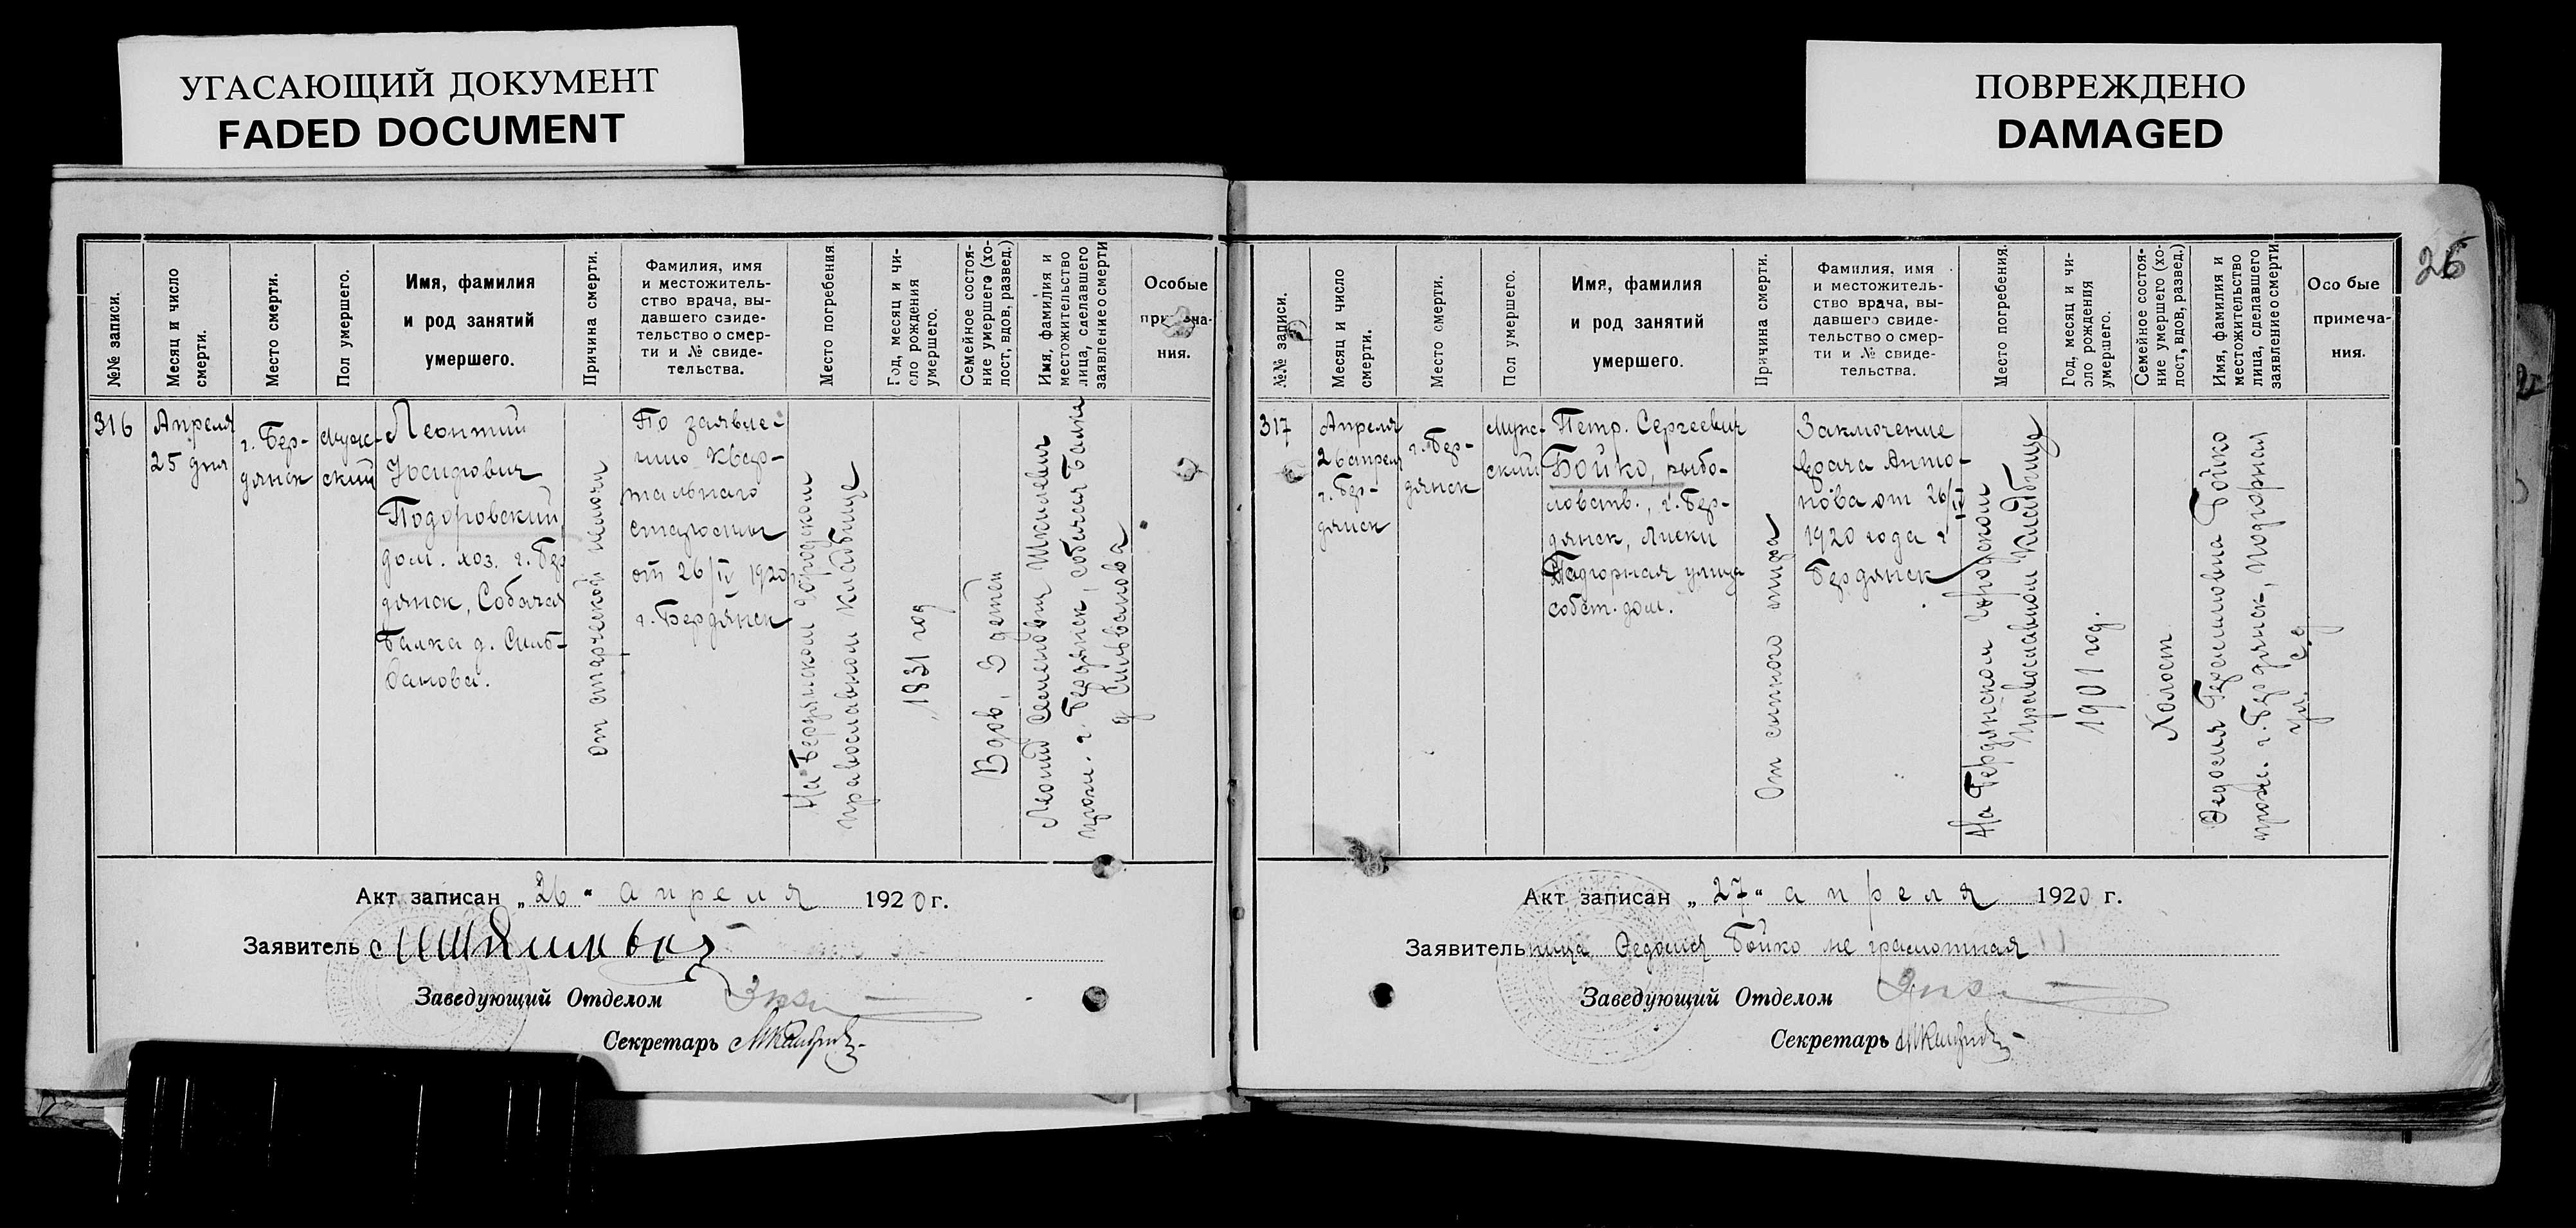 УГАСАЮЩИЙ ДОКУМЕНТ
FADED DOCUMENT
ПОВРЕЖДЕНО
DAMAGED
№№ записи.
Месяц и число
смерти.
Место смерти.
Пол умершего.
Имя, фамилия
и род занятий
умершего.
Причина смерти.
Фамилия, имя
и местожитель-
ство врача, вы-
давшего свиде-
тельство о смер-
ти и № свиде-
тельства.
Место погребения
Год, месяц и чи-
сло рождения
умершего.
Семейное состоя-
ние умершего (хо-
лост, вдов, развед.)
Имя, фамилия и
местожительство
лица, сделавшего
заявление о смерти
Особые
ния.
316
Апреля
25 дня
г. Бер-
дянск
Муж-
ский
Леонтий
Иосифович
Подоровский,
дом. хоз. г. Бер
дянск, Собачая
Балка д. Силь-
ванова.
От старческой немочи
По заявле-
нию квар-
тального
старосты
от 26/IV 1920
г. Бердянск
На Бердянском городском
православном кладбище
1831 год
Вдов, 3 детей
Леонтий Семенович
прож. г. Бердянск, Собачая Балка
д Сильванова
Акт записан „ 26 “ апреля 1920 г.
Заявитель
Заведующий Отделом
Секретарь
26
№№ записи.
Месяц и число
смерти.
Место смерти.
Пол умершего.
Имя, фамилия
и род занятий
умершего.
Причина смерти.
Фамилия, имя
и местожитель-
ство врача, вы-
давшего свиде-
тельство о смер-
ти и № свиде-
тельства.
Место погребения.
Год, месяц и чи-
сло рождения
умершего.
Семейное состоя-
ние умершего (хо-
лост, вдов, развед.)
Имя, фамилия и
местожительство
лица, сделавшего
заявление о смерти
Особые
примеча-
ния.
317
Апреля
26 апрел
г. Бер-
дянск
г. Бер-
дянск
Муж-
ский
Петр. Сергеевич
Бойко, рыбо-
ловств., г. Бер-
дянск, Лиски
Подгорная улица
собст. дом.
От сыпного тифа
Заключение
врача Анто-
нова от 26/IV
1920 года г
Бердянск
На Бердянском городском
Православном Кладбище
1901 год.
Холост
Федосия Герасимовна Бойко
прож. г. Бердянск, Подгорная
ул. с. д
Акт записан „ 27 “ апреля 1920 г.
Заявительница Федосия Бойко не грамотная
Заведующий Отделом
Секретарь